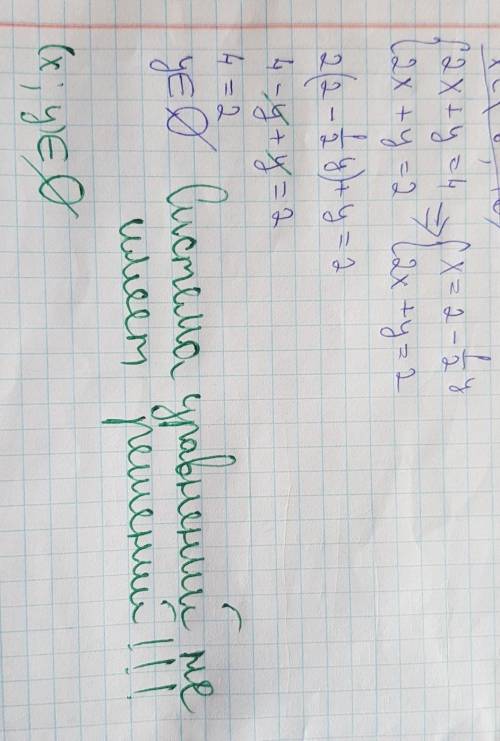 {2x + y = 4 ⇒ {x = 2 - 1/2 y
{2x + y = 2 {2x + y = 2
2(2 - 1/2 y) + y = 2
4 - y + y = 2
4 = 2
y ∈ Ø Система уравнений не
имеет решений!!!
(x; y) ∈ Ø